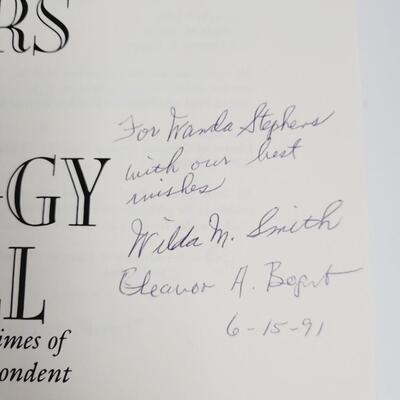 RS
For Wanda Stephens
with our best
wishes
GY
Wilda M. Smith
Eleanor A. Bogart
LL
6-15-91
imes of
pondent